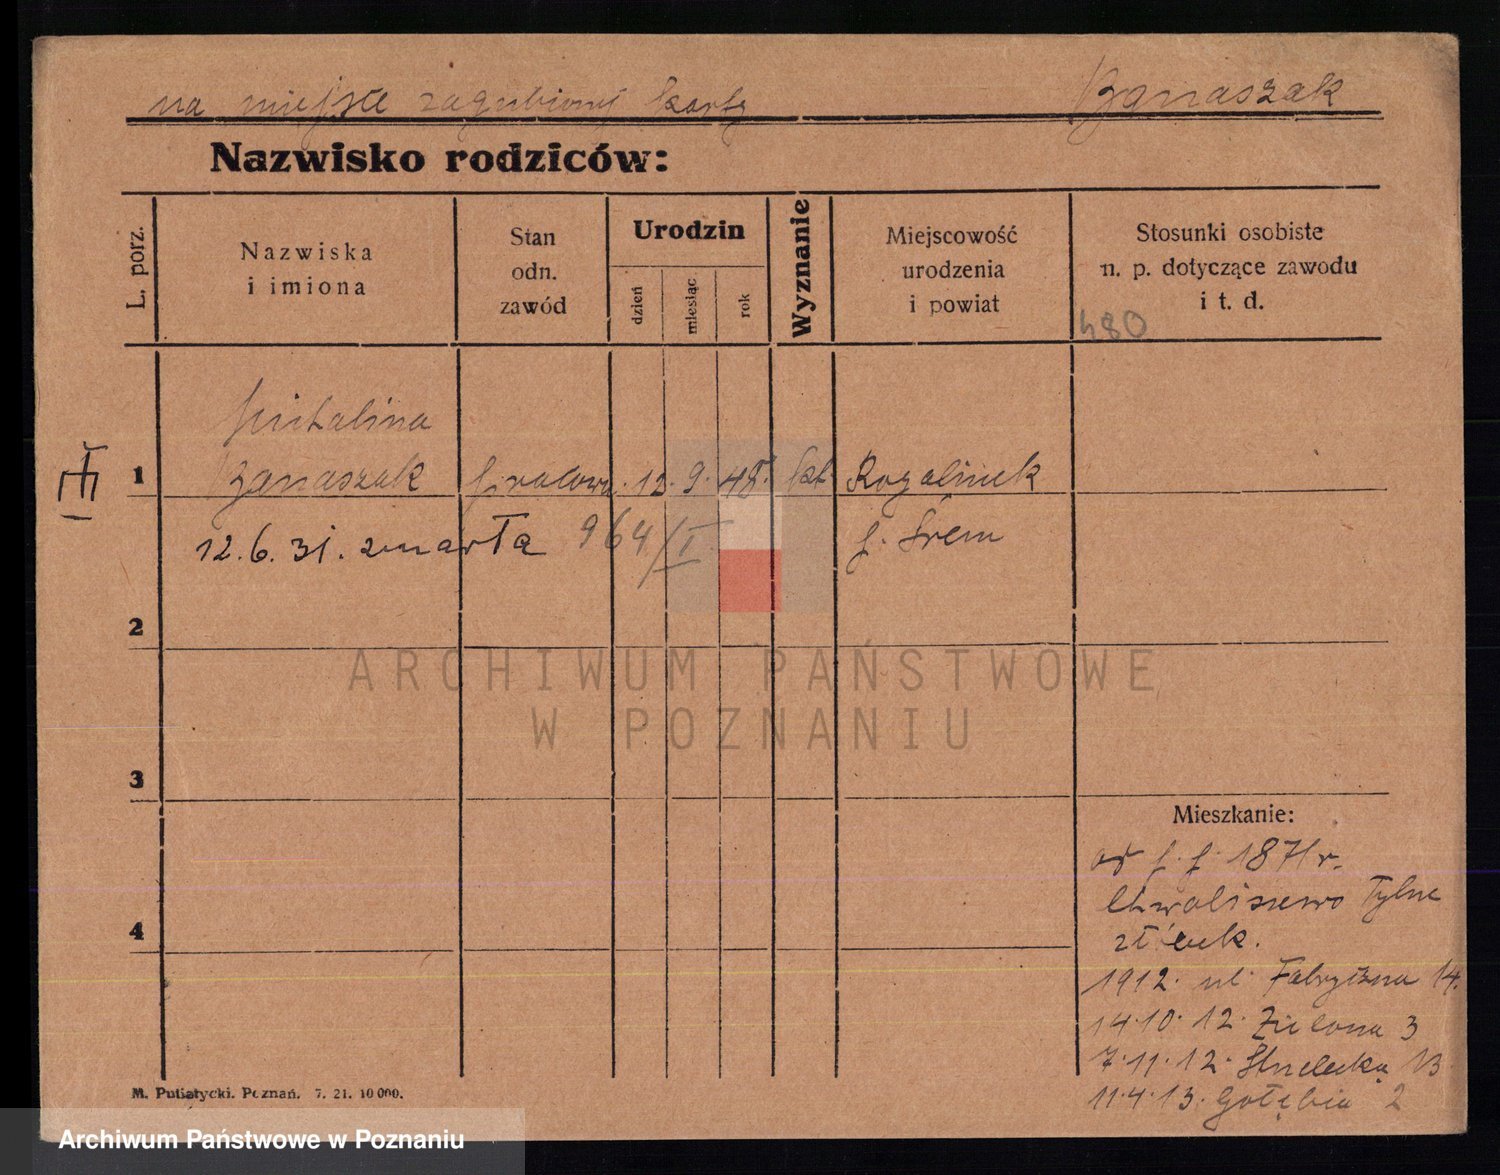 na miejsce zagubionej karty Banaszak
Nazwisko rodziców:
L. porz.
Nazwiska
i imiona
Stan
odn.
zawód
Urodzin
dzień
miesiąc
rok
Wyznanie
Miejscowość
urodzenia
i powiat
Stosunki osobiste
n. p. dotyczące zawodu
i t. d.
480
Michalina
1 Banaszak 12. 9. 48. kat Rogalinek
12.6.31. zmarła 964/I p. Śrem
2
ARCHIWUM PAŃSTWOWE
W POZNANIU
3
Mieszkanie:
1871 r.
Chwaliszewo Tylne
4
1912. ul. Fabryczna 14.
14.10.12. Zielona 3
7.11.12. Strzelecka 13
11.4.13. Gołębia 2
M. Putiatycki. Poznań. 7. 21. 10000.
Archiwum Państwowe w Poznaniu